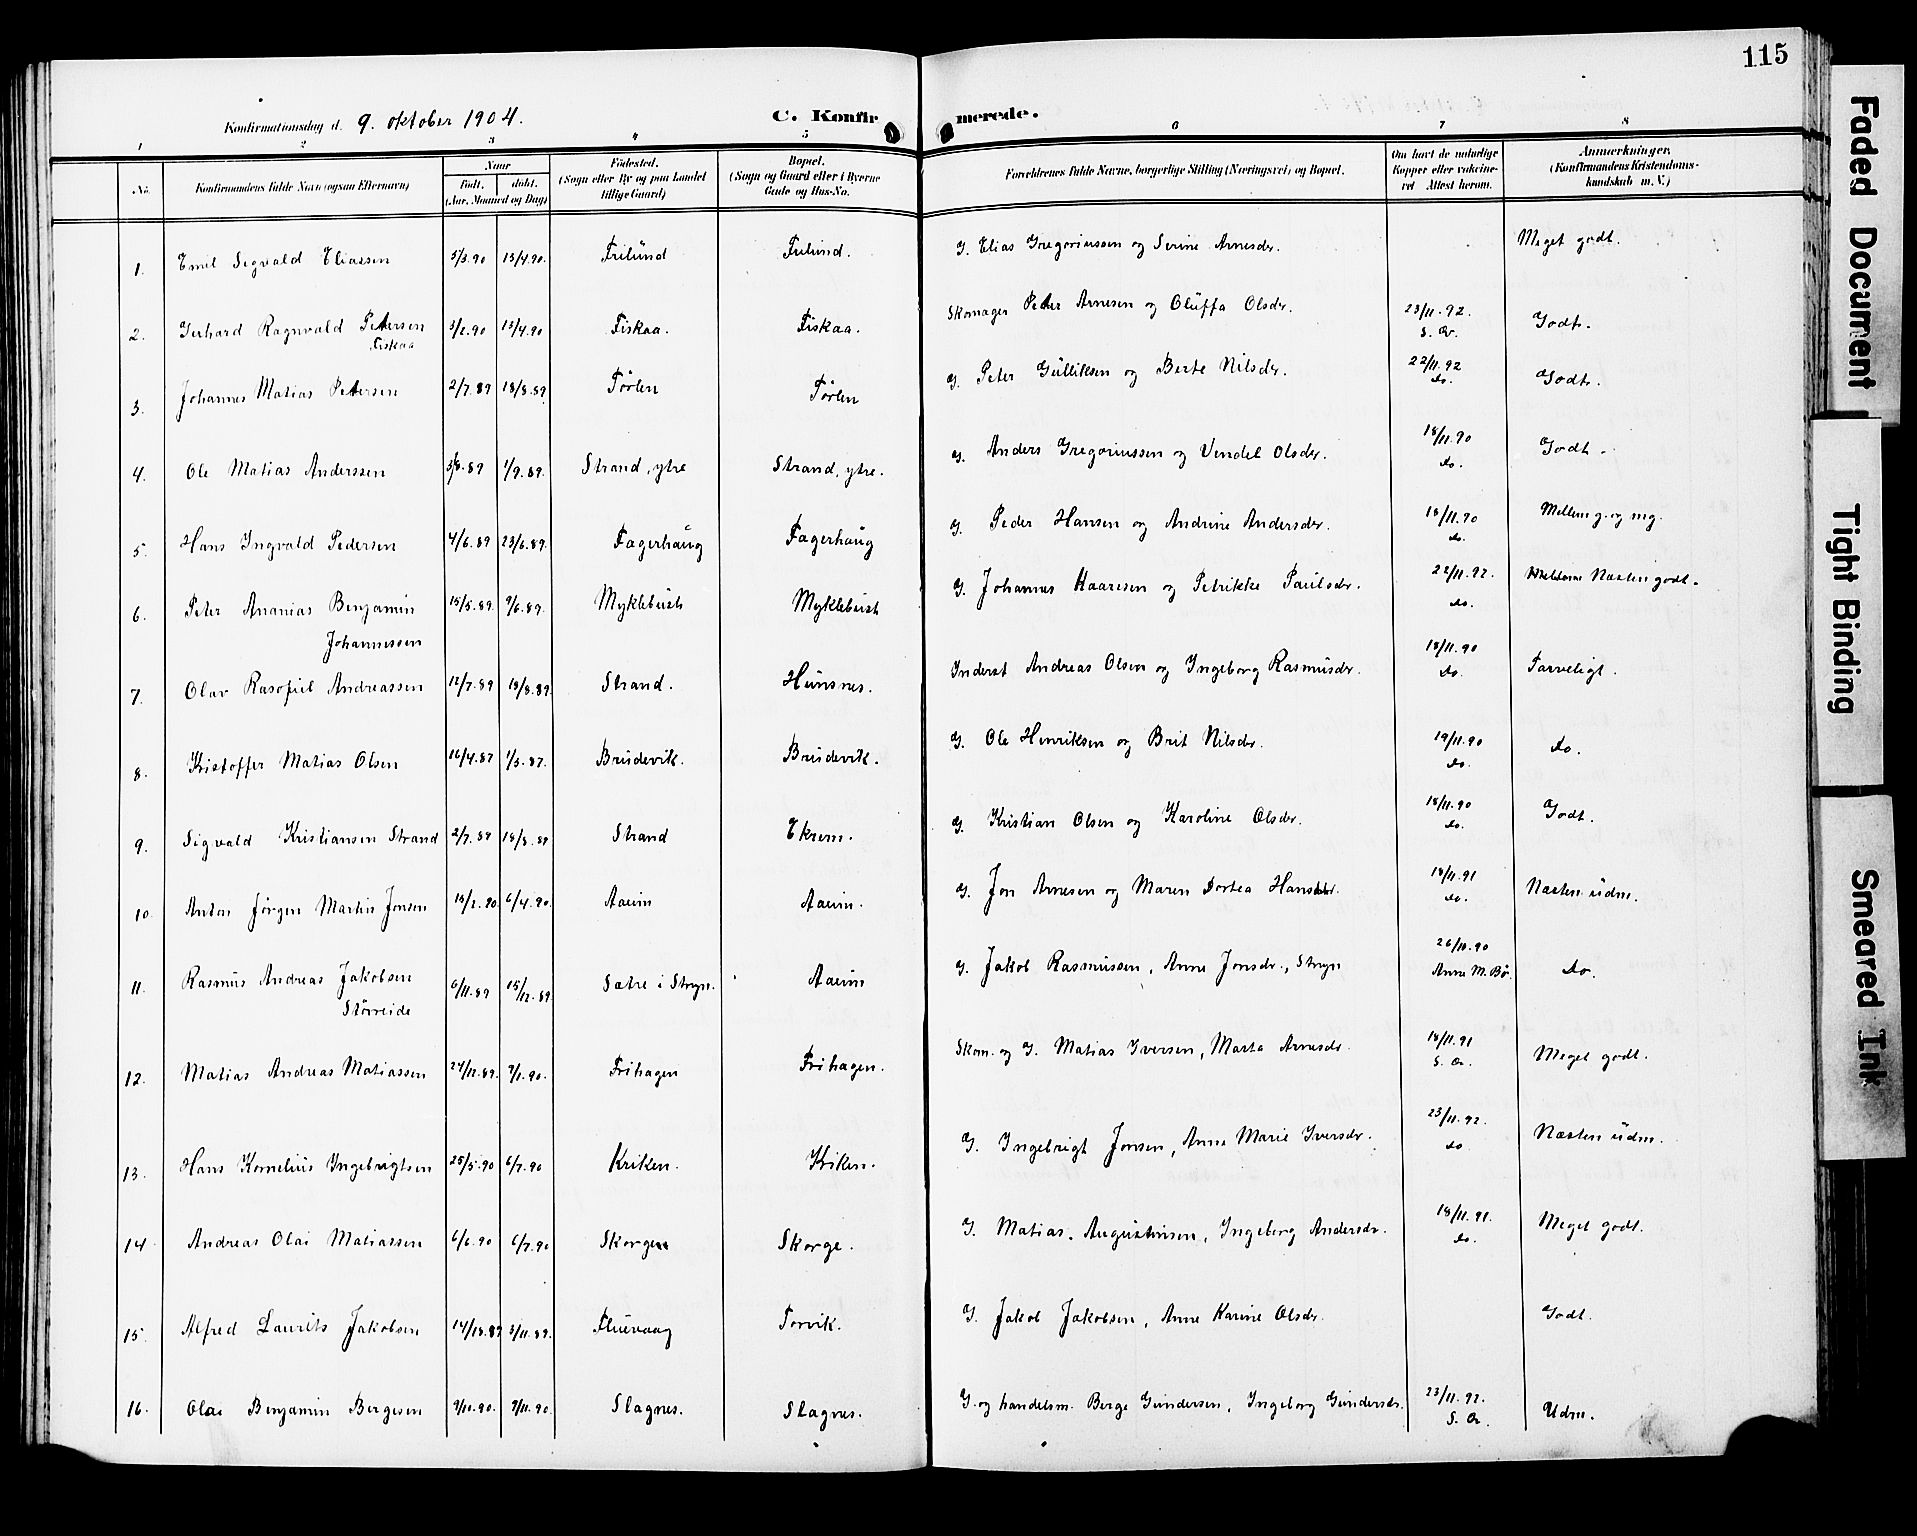 115
Konfirmationsdag d. 9. oktober 1904. C. Konfirmerede.
1 2 3 4 5 6 7 8
No. Konfirmandens fulde Navn (ogsaa Efternavn) Naar Født. døbt. (Aar, Maaned og Dag) Fødested. (Sogn eller By og paa Landet tillige Gaard) Bopæl. (Sogn og Gaard eller i Byerne Gade og Hus-No. Forældrenes fulde Navne, borgerlige Stilling (Næringsvei) og Bopæl. Om havt de naturlige Kopper eller vakcineret Attest herom. Anmærkninger. (Konfirmandens Kristendomskundskab m. V.)
1. Emil Sigvald Eliassen 5/3.90 13/4.90. Frilund Frilund. G. Elias Gregoriussen og Serine Arnesdr. Meget godt.
2. Gerhard Ragnvald Petersen 3/2.90 13/4.90 Fiskaa. Fiskaa. Skomager Peter Arnesen og Oluffa Olsdr. 23/11.92. Godt.
Fiskaa
3. Johannes Matias Petersen 2/7.89 18/8.89 Tørlen Tørlen G. Peter Gulliksen og Berte Nilsdr. 22/11.92 do. Godt.
4. Ole Matias Anderssen 3/8.89 1/9.89. Strand, ytre Strand, ytre. G. Anders Gregoriussen og Vendel Olsdr. 18/11.90 do. Godt.
5. Hans Ingvald Pedersen 4/6.89 23/6.89. Fagerhaug Fagerhaug G. Peder Hansen og Andrine Andersdr. 18/11.90 do. Mellem g. og mg.
6. Peter Ananias Benjamin 15/5.89. 9/6.89. Myklebust Myklebust G. Johannes Kaaresen og Petrikke Paulsdr. 22/11.92. do. Næsten godt.
Johannessen
7. Olav Rasofiel Andreassen 12/7.89 18/8.89. Strand. Hunsnes. Inderst Andreas Olsen og Ingeborg Rasmusdr. 18/11.90 do. Tarveligt.
8. Kristoffer Matias Olsen 16/4.87 1/5.87. Brudevik. Brudevik. G. Ole Henriksen og Brit Nilsdr. 19/11.90 do. do.
9. Sigvald Kristiansen Strand 2/7.89 18/8.89 Strand Ekrem. G. Kristian Olsen og Karoline Olsdr. 18/11.90 do. Godt.
10. Anton Jørgen Martin Jonsen 6/4.90. Aaeim Aaeim. G. Jon Arnesen og Maren Dortea Hansdr. 18/11.91 do. Næsten udm.
11. Rasmus Andreas Jakobsen 6/11.89 15/12.89. Sætre i Stryn. Aaeim G. Jakob Rasmussen, Anne Jonsdr., Stryn 26/10.90 Anne M. Bø. do.
Størreide
12. Matias Andreas Matiassen 27/12.89. 7/1.90. Frihagen Frihagen. Skom. og G. Matias Iversen, Marta Arnesdr. 18/11.91 Meget godt.
13. Hans Kornelius Ingebrigtsen 25/5.90 6/7.90 Kriken. Kriken. G. Ingebrigt Jonsen, Anne Marie Iversdr. 23/11.92. do Næsten udm.
14. Andreas Olai Matiassen 6/6.90 6/7.90 Skorgen Skorge. G. Matias Augustinsen, Ingeborg Andersdr. 18/11.91. do. Meget godt.
15. Alfred Laurits Jakobsen 14/10.89 3/11.89. Fluevaag Torvik. G. Jakob Jakobsen, Anne Karine Olsdr. Godt.
16. Olai Benjamin Bergesen 9/11.90. Slagnes. Slagnes. G. og handelsm. Berge Gundersen, Ingeborg Gundersdr. 23/11.92. Udm.
Faded Document
Tight Binding
Smeared Ink